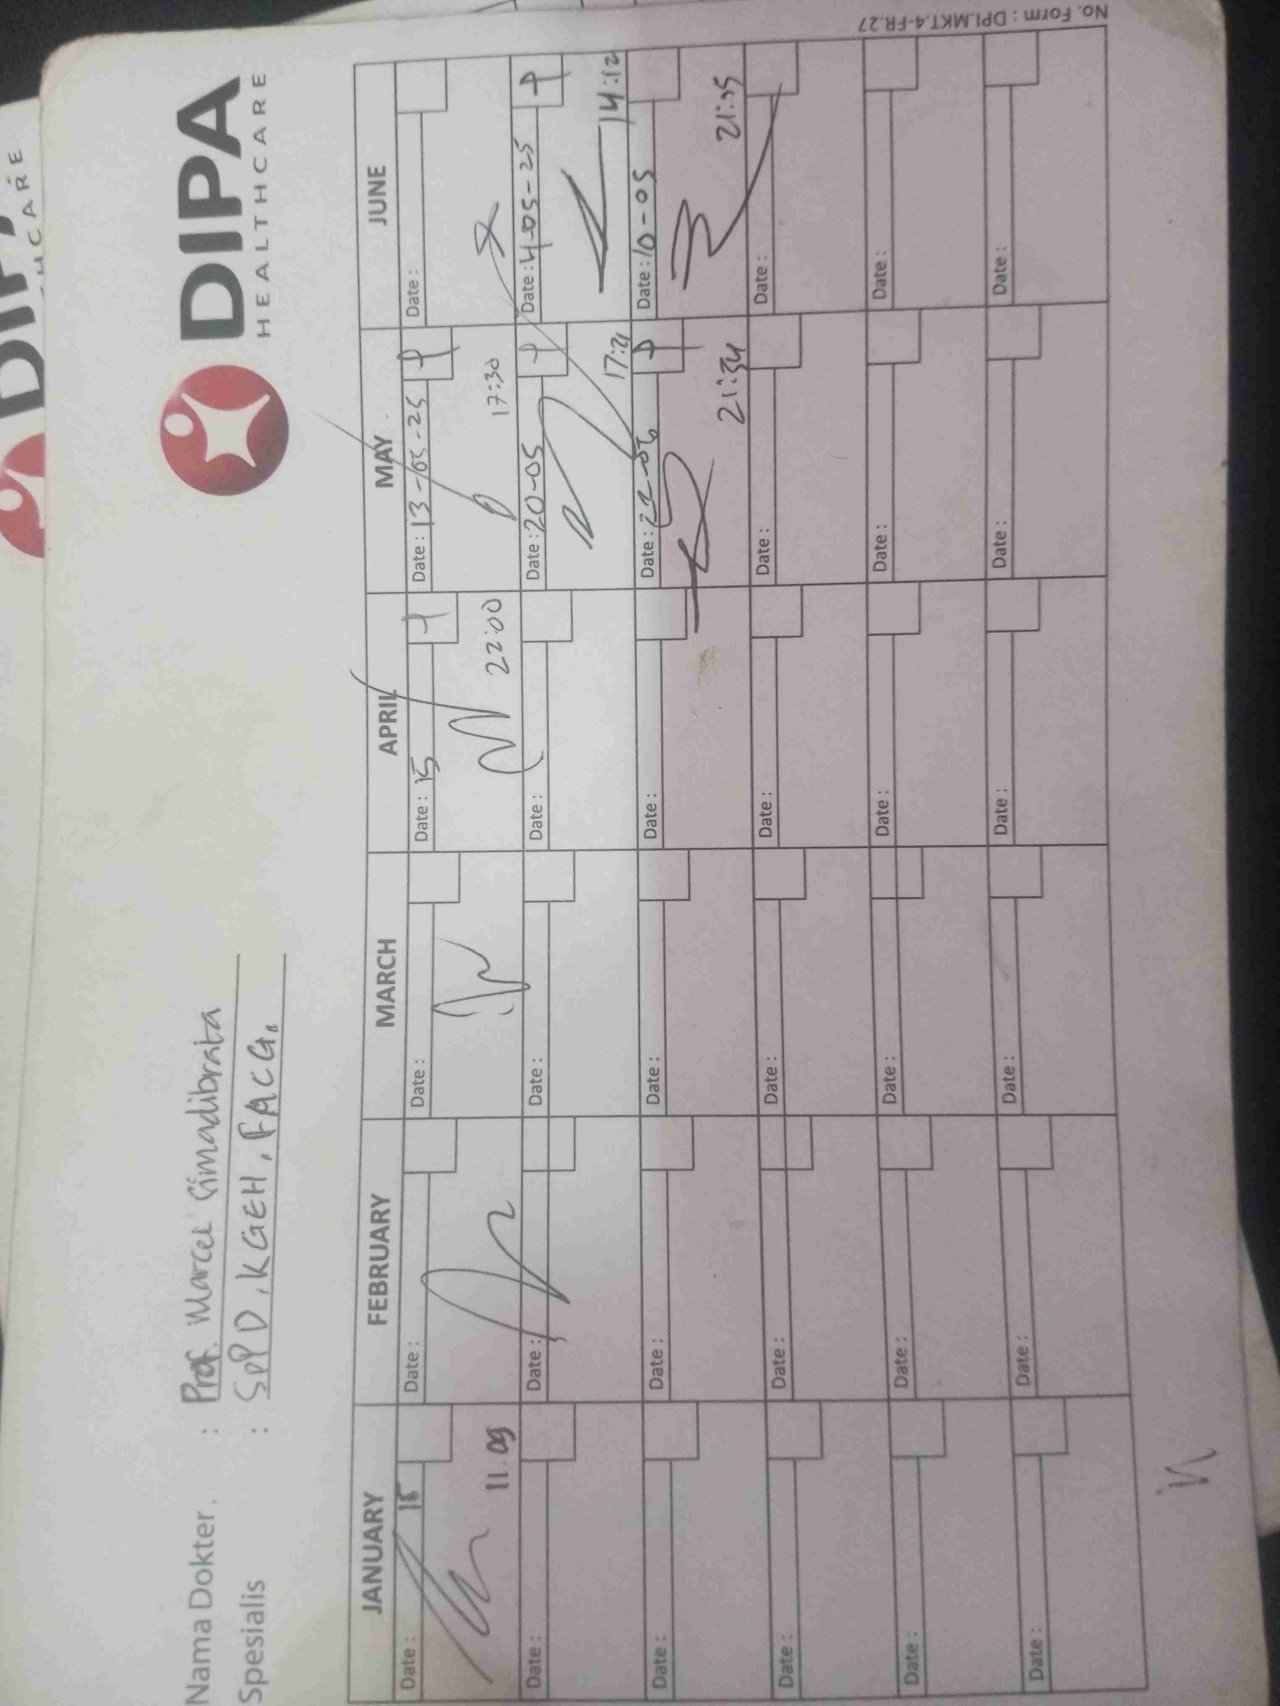 DIPA
HEALTHCARE
Nama Dokter. : Prof. Marcel Simadibrata
Spesialis : SpPD, KGEH, FACG.
JANUARY FEBRUARY MARCH APRIL MAY JUNE
Date : 15 Date : Date : Date : 15 Date : 13-05-25 Date :
11.09 22:00 17:30
Date : Date : Date : Date : Date : 20-05 Date : 4-05-25
17:21 14:12
Date : Date : Date : Date : Date : Date : 10-05
21:34 21:35
Date : Date : Date : Date : Date : Date :
Date : Date : Date : Date : Date : Date :
Date : Date : Date : Date : Date : Date :
No. Form : DPI.MKT.4-FR.27